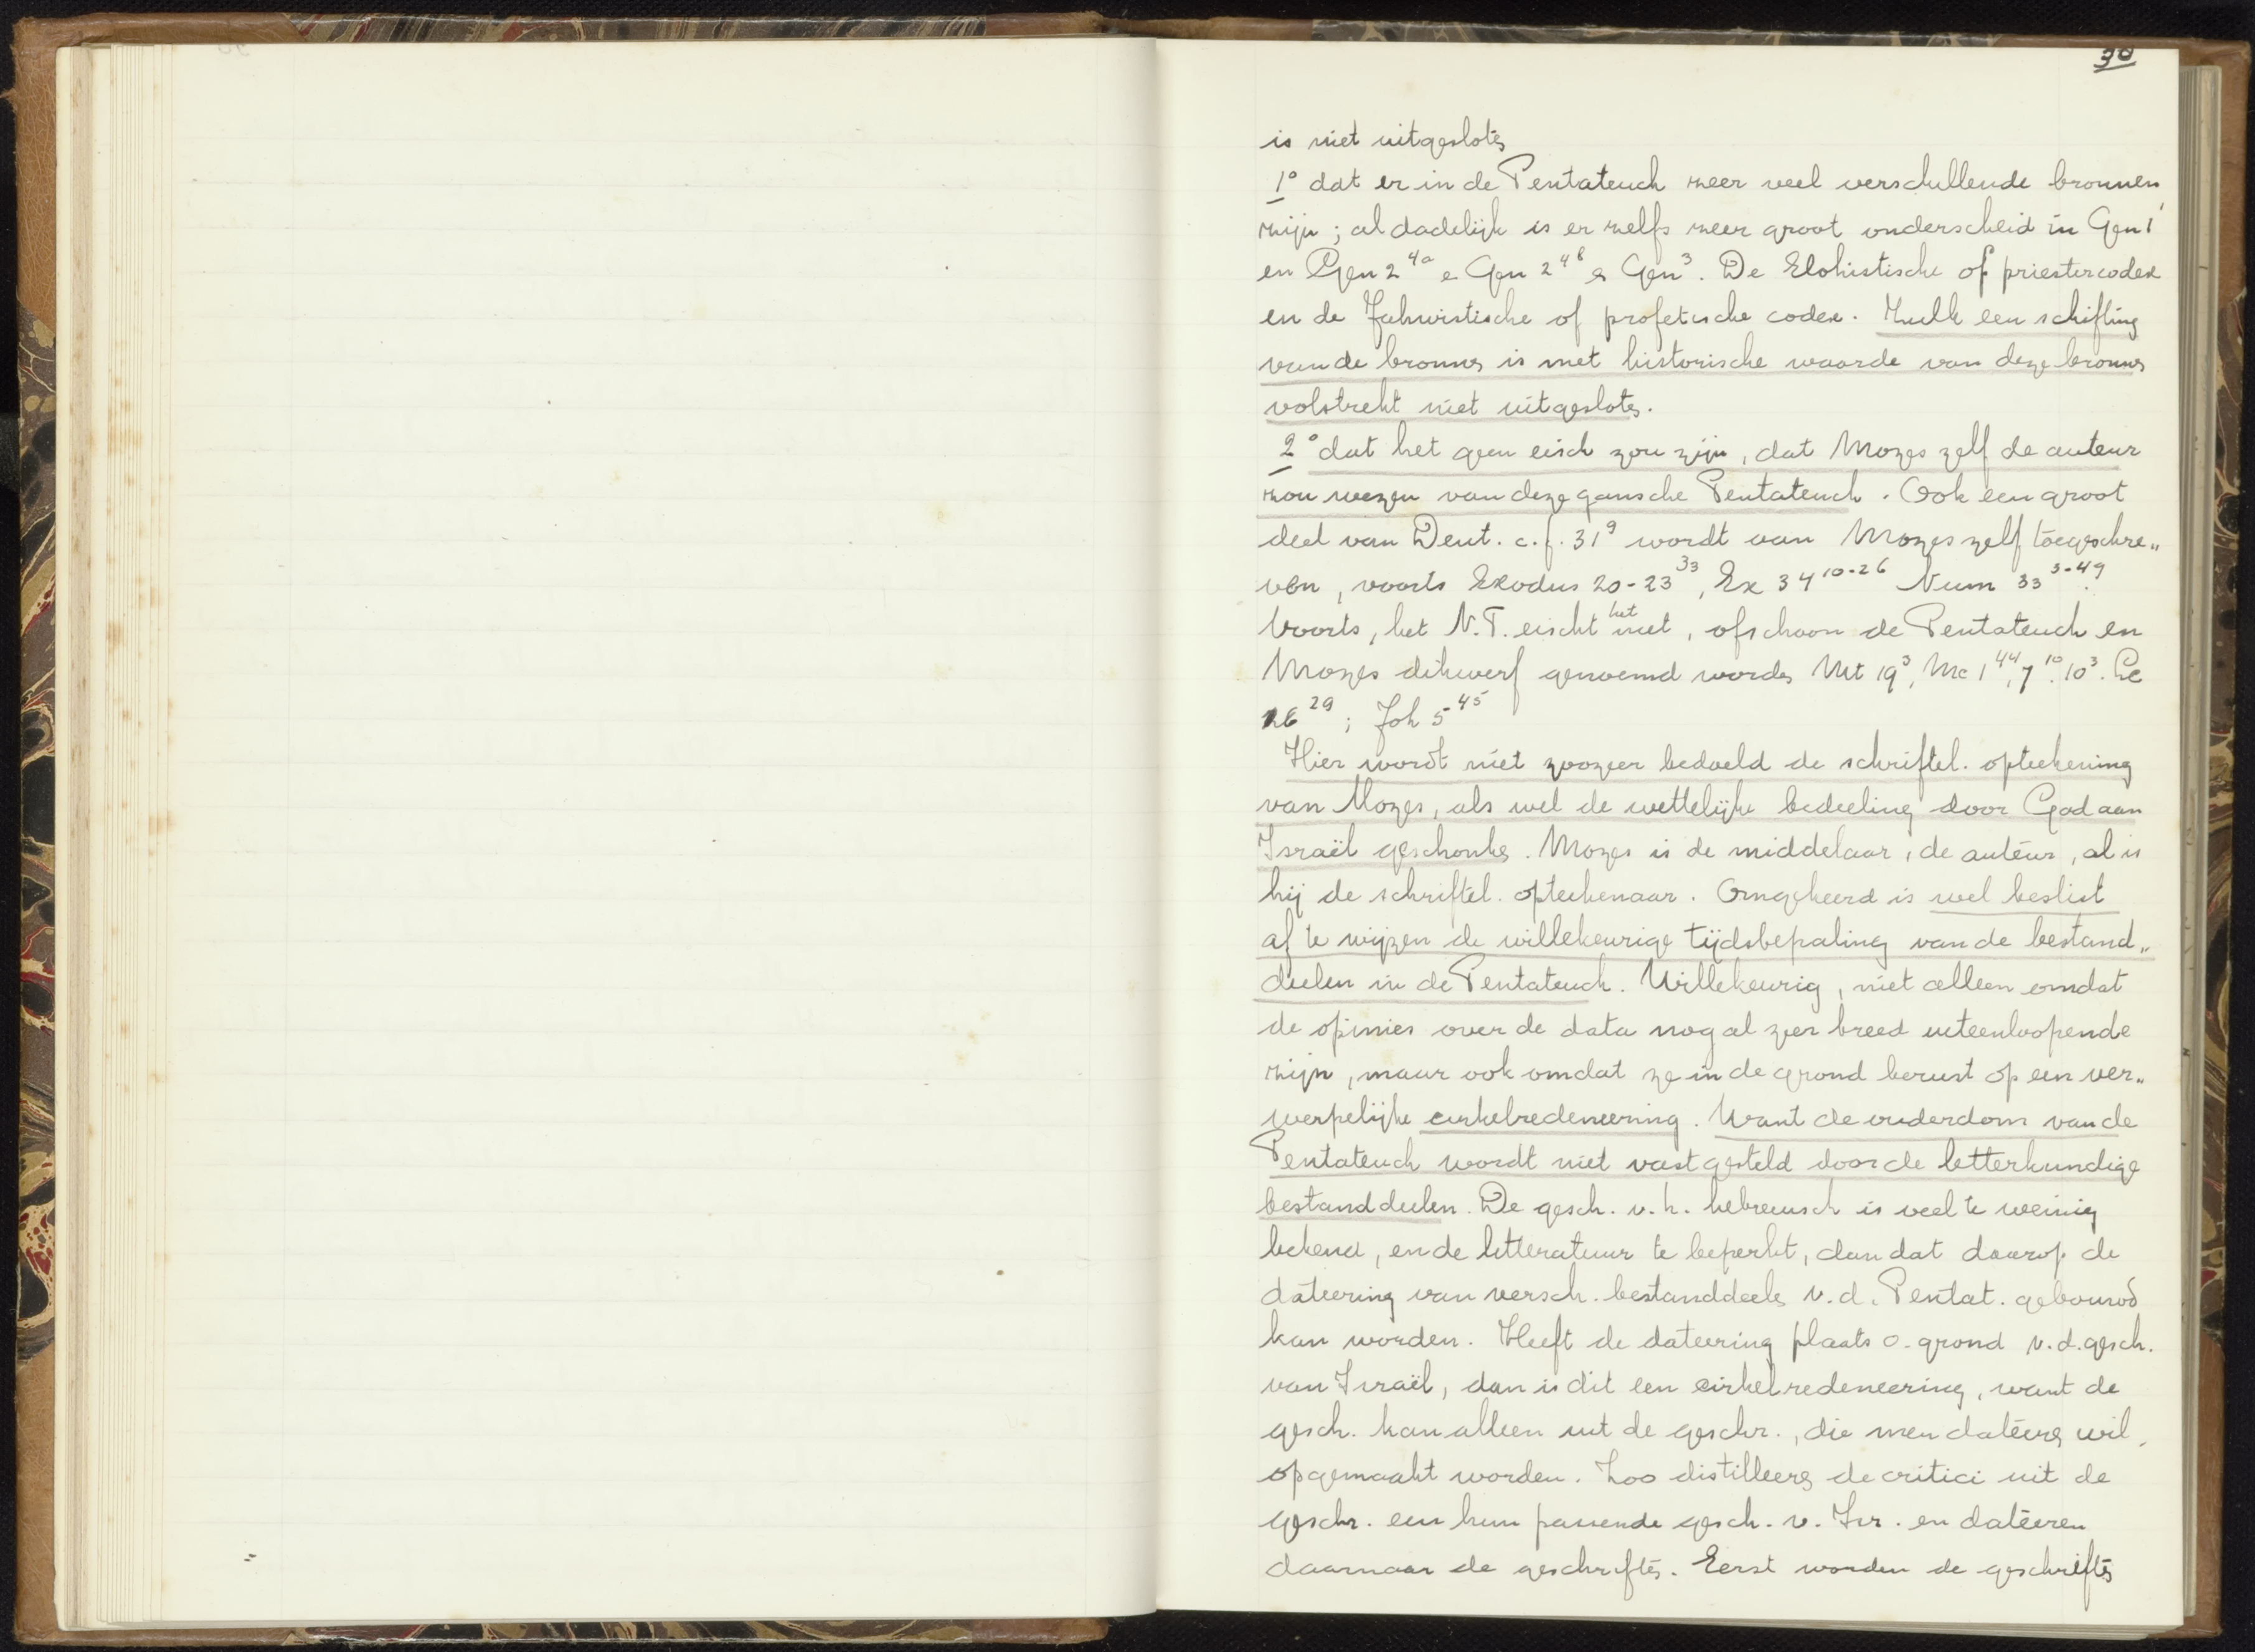 30
is niet uitgesloten
1° dat er in de Pentateuch zeer veel verschillende bronnen
zijn; al dadelijk is er zelfs zeer groot onderscheid in Gen 1
en Gen 2 4a e Gen 2 4b e Gen 3. De Elohistische of priestercodex
en de Jahwistische of profetische codex. Zulk een schifting
van de bronnen is met historische waarde van deze bronnen
volstrekt niet uitgesloten.
2° dat het geen eisch zou zijn, dat Mozes zelf de auteur
zou wezen van deze gansche Pentateuch. Ook een groot
deel van Deut. c.f. 31 9 wordt aan Mozes zelf toegeschre„
ven, voorts Exodus 20-23 33, Ex 34 10-26 Num 33 3-49.
Voorts, het N.T. eischt het niet, ofschoon de Pentateuch en
Mozes dikwerf genoemd worden Mt 19 3, Mc 1 44, 7 10. 10 3. Lc
16 29; Joh 5 45
Hier wordt niet zoozeer bedoeld de schriftel. opteekening
van Mozes, als wel de wettelijke bedeeling door God aan
Israël geschonken. Mozes is de middelaar, de auteur, al is
hij de schriftel. opteekenaar. Omgekeerd is wel beslist
af te wijzen de willekeurige tijdsbepaling van de bestand„
deelen in de Pentateuch. Willekeurig, niet alleen omdat
de opinies over de data nog al zeer breed uiteenloopende
zijn, maar ook omdat ze in de grond berust op een ver„
werpelijke cirkelredeneering. Want de ouderdom van de
Pentateuch wordt niet vastgesteld door de letterkundige
bestanddeelen. De gesch. v. h. hebreeusch is veel te weinig
bekend, en de litteratuur te beperkt, dan dat daarop de
dateering van versch. bestanddeelen v.d. Pentat. gebouwd
kan worden. Heeft de dateering plaats o. grond v.d. gesch.
van Israël, dan is dit een cirkelredeneering, want de
gesch. kan alleen uit de geschr., die men dateeren wil,
opgemaakt worden. Zoo distilleeren de critici uit de
geschr. een hun passende gesch. v. Isr. en dateeren
daarnaar de geschriften. Eerst worden de geschriften